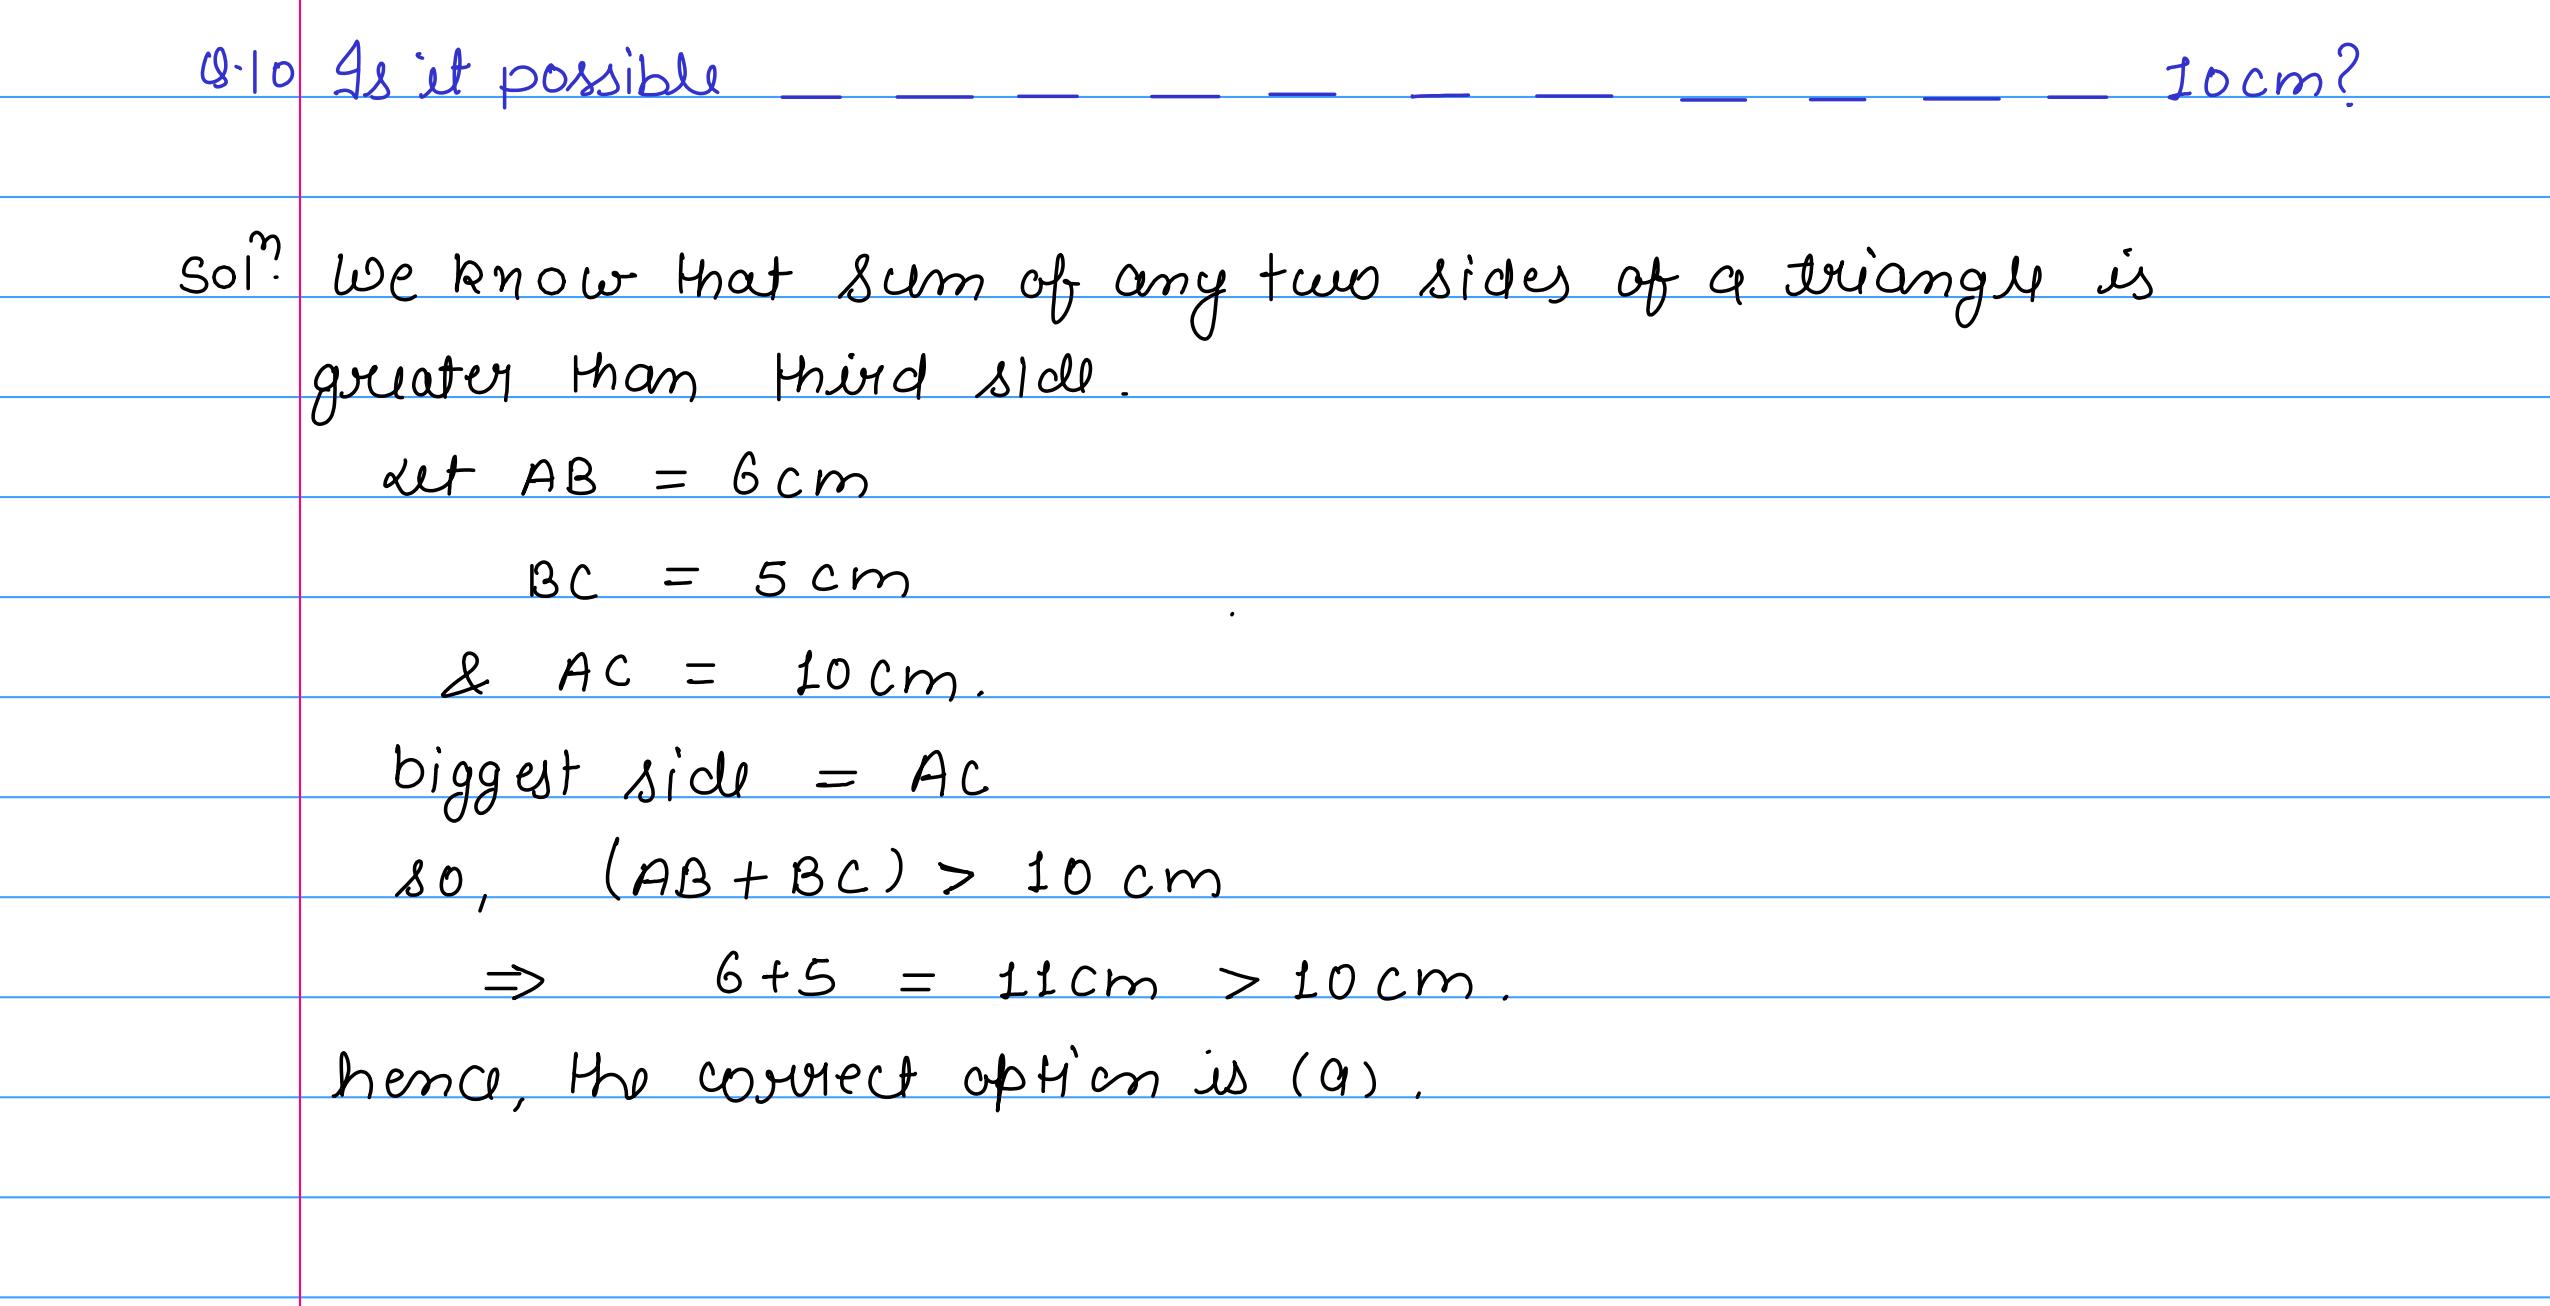 Q.10 Is it possible _ _ _ _ _ _ _ _ _ _ _ 10cm?
Solⁿ: We know that sum of any two sides of a triangle is
greater than third side.
Let AB = 6cm
BC = 5 cm
& AC = 10cm.
biggest side = AC
so, (AB + BC) > 10 cm
⇒ 6+5 = 11cm > 10 cm.
hence, the correct option is (a).